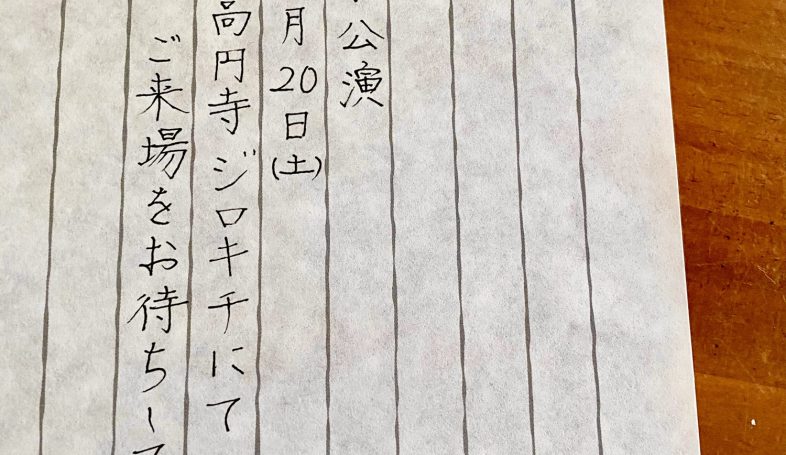 公演
月20日(土)
高円寺ジロキチにて
ご来場をお待ちして